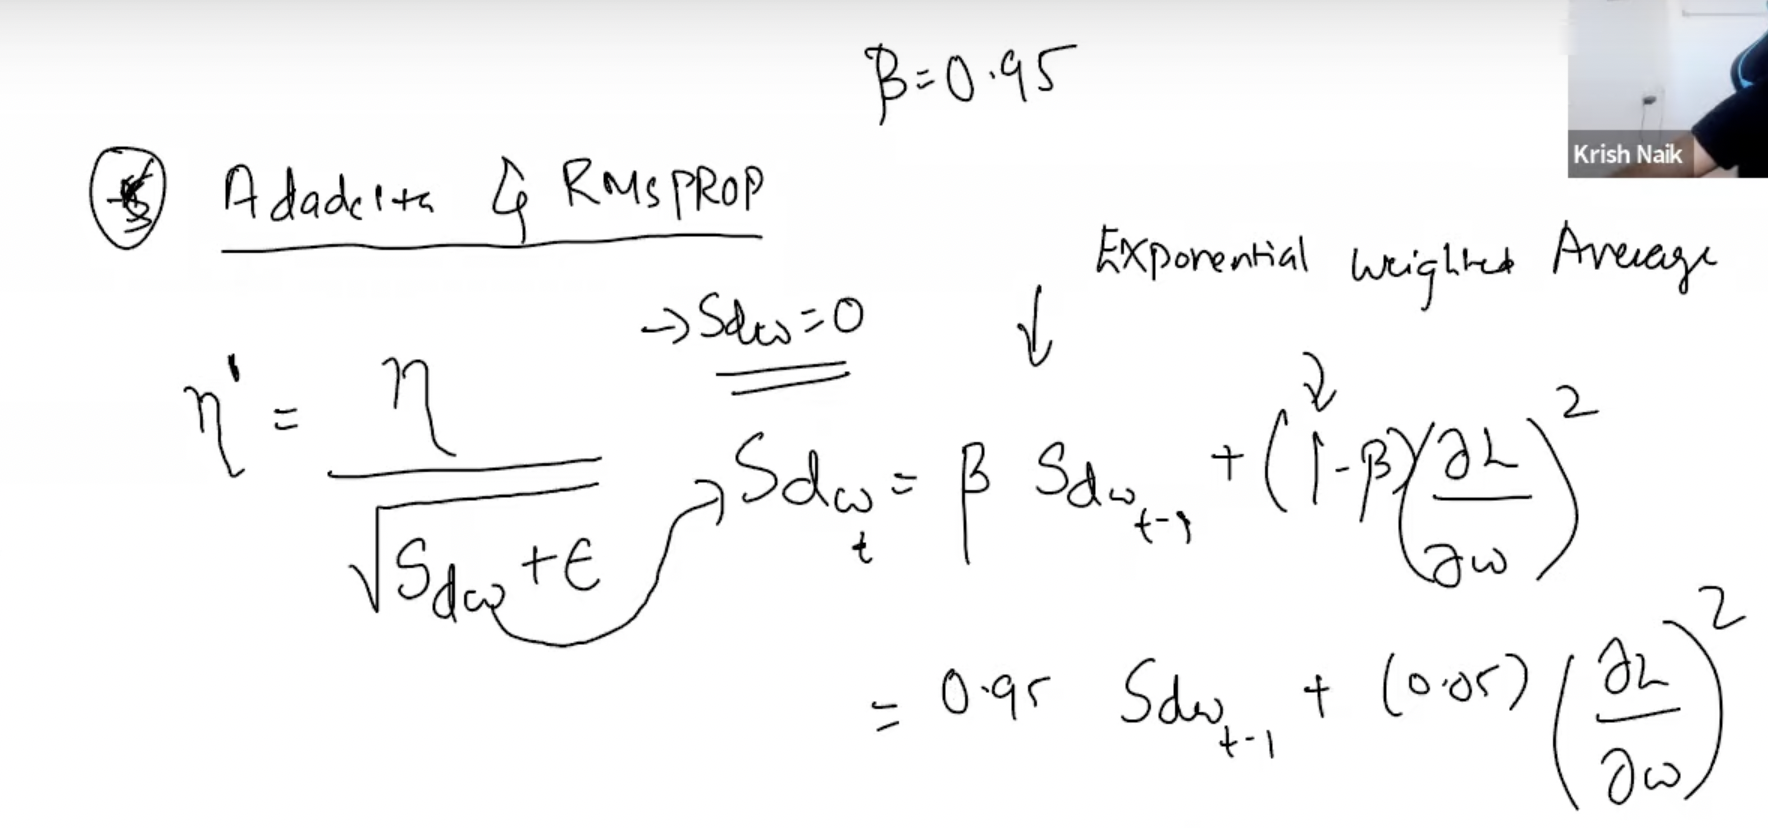 β=0.95
Krish Naik
Adadelta & RMSPROP
Exponential Weighted Average
→ Sdw=0
η' = η / √(Sdw + ϵ)
Sdw_t = β Sdw_t-1 + (1-β)(∂L/∂w)²
= 0.95 Sdw_t-1 + (0.05) (∂L/∂w)²